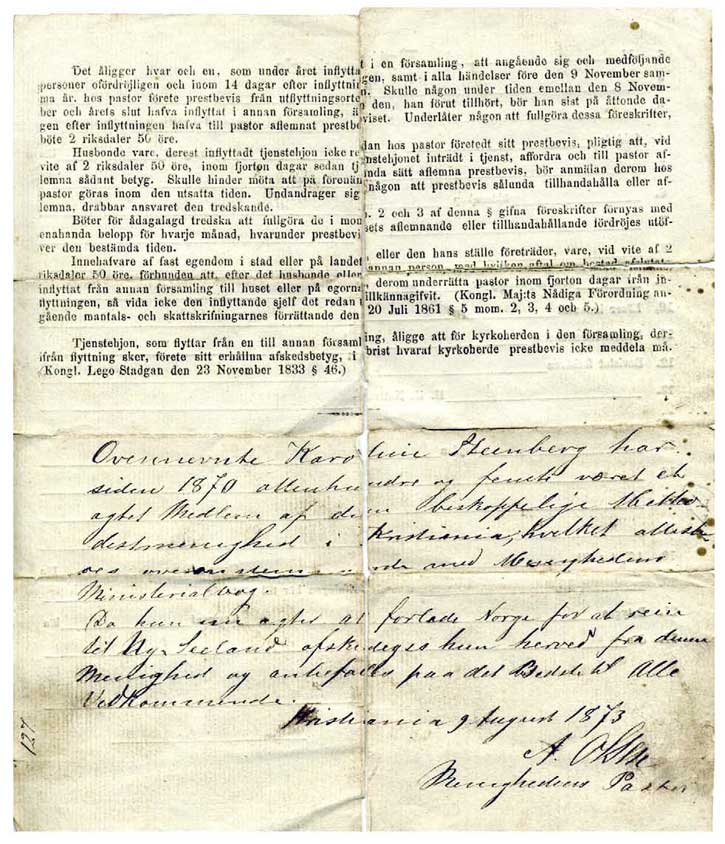 Det åligger hvar och en, som under året inflytta t i en församling, att angående sig och medföljande
personer ofördröjligen och inom 14 dagar efter inflyttnin gen, samt i alla händelser före den 9 November sam-
ma år, hos pastor förete prestbevis från utflyttningsorte n. Skulle någon under tiden emellan den 8 Novem-
ber och årets slut hafva inflyttat i annan församling, ä den, han förut tillhört, bör han sist på åttonde da-
gen efter inflyttningen hafva till pastor aflemnat prestbe viset. Underlåter någon att fullgöra dessa föreskrifter,
böte 2 riksdaler 50 öre.
Husbonde vare, derest inflyttadt tjenstehjon icke re dan hos pastor företedt sitt prestbevis, pligtig att, vid
vite af 2 riksdaler 50 öre, inom fjorton dagar sedan tj enstehjonet inträdt i tjenst, affordra och till pastor af-
lemna sådant betyg. Skulle hinder möta att på förenän nda sätt aflemna prestbevis, bör anmälan derom hos
pastor göras inom den utsatta tiden. Undandrager sig någon att prestbevis sålunda tillhandahålla eller af-
lemna, drabbar ansvaret den tredskande.
Böter för ådagalagd tredska att fullgöra de i mom . 2 och 3 af denna § gifna föreskrifter förnyas med
enahanda belopp för hvarje månad, hvarunder prestbevi sets aflemnande eller tillhandahållande fördröjes utöf-
ver den bestämda tiden.
Innehafvare af fast egendom i stad eller på landet , eller den hans ställe företräder, vare, vid vite af 2
riksdaler 50 öre, förbunden att, efter det husbonde eller annan person, med hvilken aftal om bostad afslutat,
inflyttat från annan församling till huset eller på egorna derom underrätta pastor inom fjorton dagar från in-
flyttningen, så vida icke den inflyttande sjelf det redan tillkännagifvit. (Kongl. Maj:ts Nådiga Förordning an-
gående mantals- och skattskrifningarnes förrättande den 20 Juli 1861 § 5 mom. 2, 3, 4 och 5.)
Tjenstehjon, som flyttar från en till annan församl ing, åligge att för kyrkoherden i den församling, der-
ifrån flyttning sker, förete sitt erhållna afskedsbetyg, i brist hvaraf kyrkoherde prestbevis icke meddela må.
(Kongl. Lego Stadgan den 23 November 1833 § 46.)
Ovennevnte Karoline Steenberg har
siden 1870 attenhundre og femti været et
agtet Medlem af den biskoppelige Metho-
distmenighed i Kristiania, hvilket atteste-
res med Menighedens
Ministerialbog.
Da hun nu agter at forlade Norge for at reise
til Ny-Seeland afskediges hun herved fra denne
Menighed og anbefales paa det Bedste til Alle
Vedkommende.
Kristiania 9 August 1873
A. Olsen
Menighedens Pastor
127